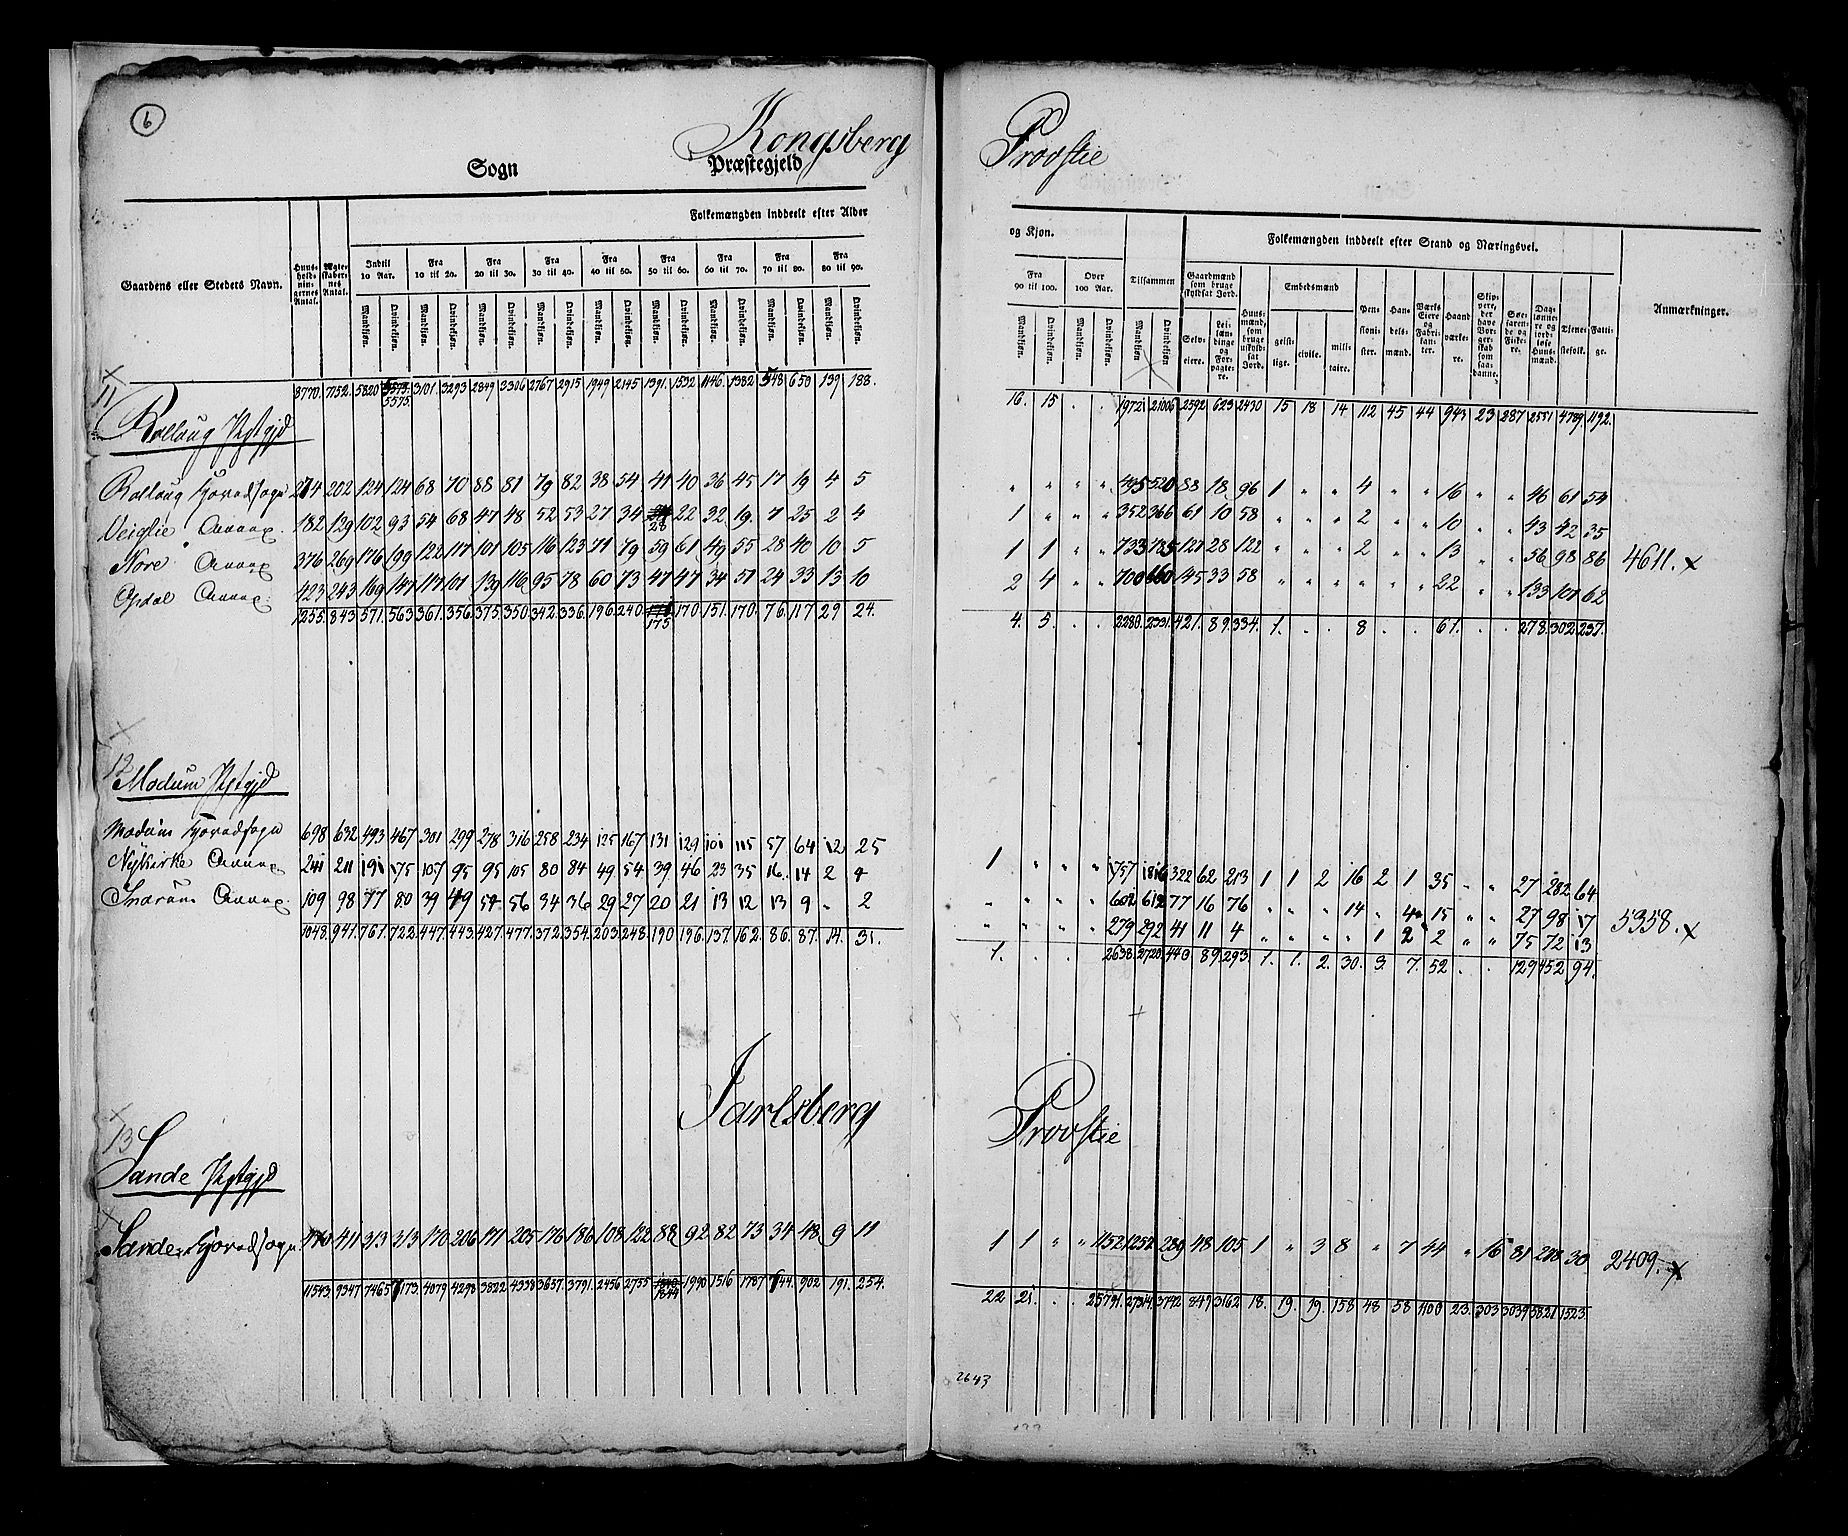 6
Kongsberg Provstie
Sogn Præstegjeld
Gaardens eller Stedets Navn. Huusholdningernes Antal. Ægteskabernes Antal. Folkemængden inddeelt efter Alder og Kjøn.
Indtil 10 Aar. Fra 10 til 20. Fra 20 til 30. Fra 30 til 40. Fra 40 til 50. Fra 50 til 60. Fra 60 til 70. Fra 70 til 80. Fra 80 til 90. Fra 90 til 100. Over 100 Aar. Tilsammen
Mandkjøn. Qvindekjøn.
Folkemængden inddeelt efter Stand og Næringsvei.
Gaardmænd som bruge skyldsat Jord. Selveiere. Leilændinge og Forpagtere. Huusmænd, som bruge uskyldsat Jord. Embedsmænd geistlige. civile. militaire. Pensionister. Handelsmænd. Værks Eiere og Fabrikanter. Haandværkere. Skippere, der have Borgerskab som saadanne. Søefarende og Fiskere. Daglønnere og jordløse Huusmænd. Tjenestefolk. Fattige. Anmærkninger.
8770. 7152. 5820 5575. 3101. 3293 2849 3306 2767 2915 1949 2145 1391. 1532 1146. 1382 548 650 139 188. 16. 15 . . 19721 21006 2592 623 2430 15 18 14 112 45 44 943 23 287 2551 4789. 1192.
11
Rollaug Pstgjd
Rollaug Hovedsogn 274 202 124 124 68 70 88 81 79 82 38 54 41 40 36 45 17 19 4 5 " " " " 495 520 88 18 96 1 " " 4 " " 16 " " 46 61 54
Veiglie Annex. 182 129 102 93 54 68 47 48 52 53 27 34 28 22 32 19. 7 25 2 4 1 " " " 352 366 61 10 58 " " " 2 " " 10 " " 43 42 35
Nore Annex 376 269 176 199 122 117 101 105 116 123 71 79 59 61 49 55 28 40 10 5 1 1 " " 733 785 127 28 122 " " " 2 " " 13 " " 56 98 86 4611. x
Opdal Annex. 423 243 169 147 117 101 139 116 95 78 60 73 47 47 34 51 24 33 13 10 2 4 " " 700 660 145 33 58 " " " " " " 22 " " 133 101 62
1255. 843 571. 563 361. 356. 375. 350. 342. 336. 196. 240. 175 170. 151. 170. 76. 117 29 24. 4. 5. . . 2280. 2331. 421. 89. 334. 1. . . 8 . . 61. . . 278. 302. 237.
12
Modum Pstgjd
Modum Hovedsogn 698 632 493 467 301 299 278 316 258 234 125 167 131 129 101 115 57 64 12 25 1 " " " 1757 1816 322 62 213 1 1 2 16 2 1 35 " " 27 282 64
Nykirke Annex 241 211 191 175 107 95 95 105 80 84 49 54 39 46 23 35 16. 14 2 4 " " " " 602 612 77 16 76 " " " 14 " 4 15 " " 27 98 17 5358. x
Snarum Annex. 109 98 77 80 39 49 54 56 34 36 29 27 20 21 13 12 13 9 " 2 " " " " 279 292 41 11 4 " " " " 1 2 2 " " 75 72 13
1048. 941. 761. 722. 447. 443. 427. 477. 372. 354. 203. 248. 190 196. 137. 162. 86. 87. 14. 31. 1. . . . 2638. 2720. 440. 89 293. 1. 1. 2. 30. 3. 7. 52. . . 129 452 94.
Jarlsberg Provstie
13
Sande Pstgjd
Sande Hovedsogn 470 411 313 313 170 206 171 205 176 186 108 122 88 92 82 73 34 48 9 11 1 1 " " 1152 1257 289 48 105 1 " 3 8 " 7 44 " 16 81 278 30 2409. x
11543. 9347 7465 7173. 4079 4298 3822 4338 3657. 3791. 2456 2755 1844 1990 1516 1787 744. 902 191. 254. 22 21. . . 25791. 27314. 3742 849 3162 18. 19. 19. 158 48 58 1100 23. 303 3039 5821 1523.
2643